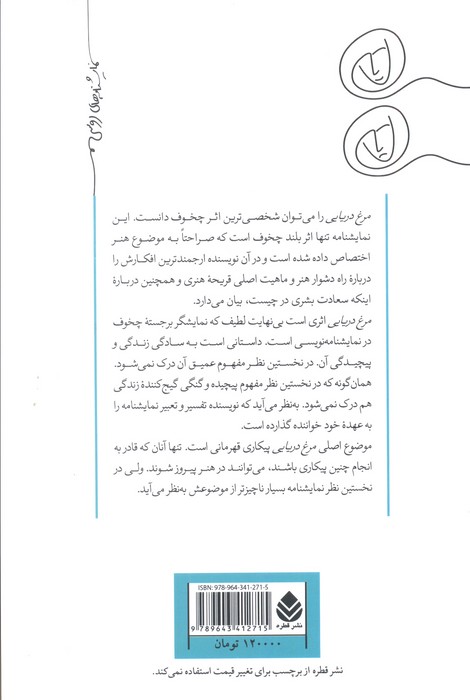 نمایشنامه‌های روسی
مرغ دریایی را می‌توان شخصی‌ترین اثر چخوف دانست. این
نمایشنامه تنها اثر بلند چخوف است که صراحتاً به موضوع هنر
اختصاص داده شده است و در آن نویسنده ارجمندترین افکارش را
دربارهٔ راه دشوار هنر و ماهیت اصلی قریحهٔ هنری و همچنین دربارهٔ
اینکه سعادت بشری در چیست، بیان می‌دارد.
مرغ دریایی اثری است بی‌نهایت لطیف که نمایشگر برجستهٔ چخوف
در نمایشنامه‌نویسی است. داستانی است به سادگی زندگی و
پیچیدگی آن. در نخستین نظر مفهوم عمیق آن درک نمی‌شود.
همان‌گونه که در نخستین نظر مفهوم پیچیده و گنگی گیج‌کنندهٔ زندگی
هم درک نمی‌شود. به‌نظر می‌آید که نویسنده تفسیر و تعبیر نمایشنامه را
به عهدهٔ خود خواننده گذارده است.
موضوع اصلی مرغ دریایی پیکاری قهرمانی است. تنها آنان که قادر به
انجام چنین پیکاری باشند، می‌توانند در هنر پیروز شوند. ولی در
نخستین نظر نمایشنامه بسیار ناچیزتر از موضوعش به‌نظر می‌آید.
ISBN: 978-964-341-271-5
9 789643 412715
نشر قطره
۱۲۰۰۰۰ تومان
نشر قطره از برچسب برای تغییر قیمت استفاده نمی‌کند.